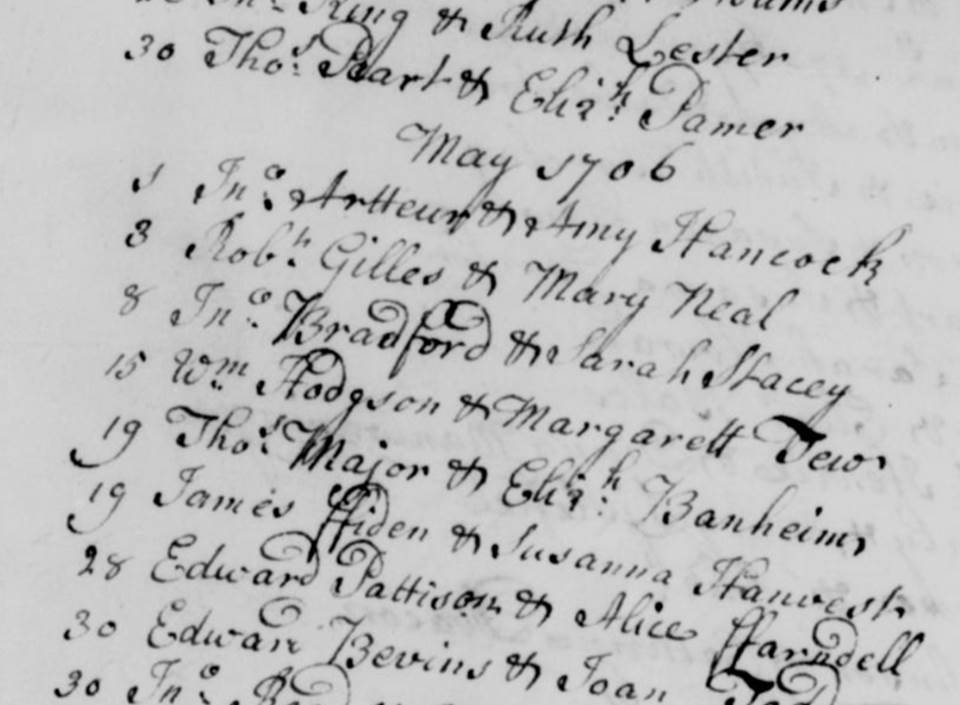 Jno. King & Ruth Lester
30 Thos. Peart & Elizh. Pamer
May 1706
1 Jno. Artteur & Amy Hancock
3 Robt. Gilles & Mary Neal
8 Jno. Bradford & Sarah Stacey
15 Wm Hodgson & Margarett Dew
19 Thos. Major & Elizh. Banheim
19 James ffiden & Susanna
28 Edward Pattison & Alice ffarndell
30 Edward Bevins & Joan
30 Jno.